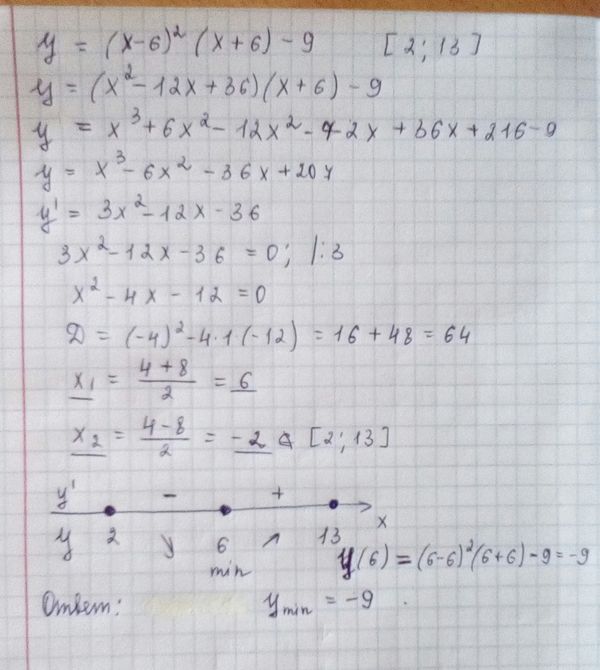 y = (x-6)² (x+6) - 9 [2; 13]
y = (x² - 12x + 36)(x+6) - 9
y = x³ + 6x² - 12x² - 72x + 36x + 216 - 9
y = x³ - 6x² - 36x + 207
y' = 3x² - 12x - 36
3x² - 12x - 36 = 0; |:3
x² - 4x - 12 = 0
D = (-4)² - 4·1·(-12) = 16 + 48 = 64
x₁ = (4+8)/2 = 6
x₂ = (4-8)/2 = -2 ∉ [2; 13]
y' - + x
y 2 ↘ 6 ↗ 13
min
y(6) = (6-6)²(6+6) - 9 = -9
Ответ: y min = -9.